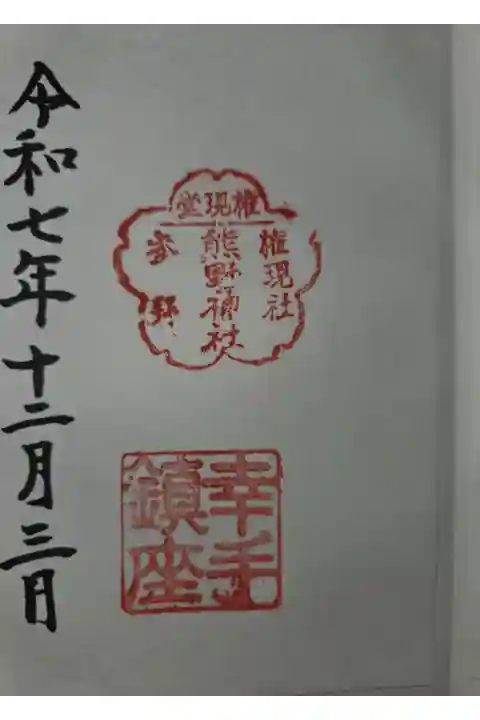 権現堂
権現社
熊野神社
幸手
鎮座
令和七年十二月三日